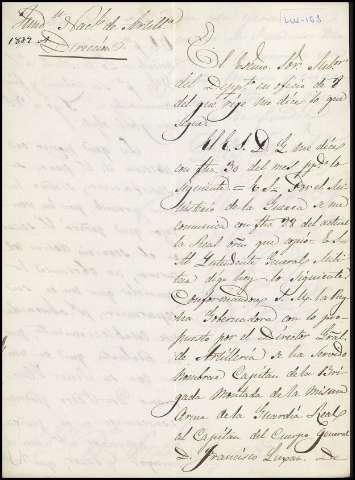 LUI-163
Fund.n Nac.l de Artill.a
1837
Direccion
El Exmo. Sor. Subor.
del Depart.o en oficio de 8
del que rige me dice lo que
sigue.
El E. S. D. G. me dice
con fha 30 del mes pp.do lo
siguiente = E. S. = Por el Mi-
nisterio de la Guerra se me
comunica con fha 28 del actual
la Real orn. que copio = E. S. =
Al Yntendente General Mili-
tar digo hoy lo siguiente =
Conformandose S. M. la Rey-
na Gobernadora con lo pro-
puesto por el Director Gral.
de Artilleria se ha servido
nombrar Capitan de la Bri-
gada Montada de la misma
Arma de la Guardia Real
al Capitan del Cuerpo General
D. Francisco Luxan. De